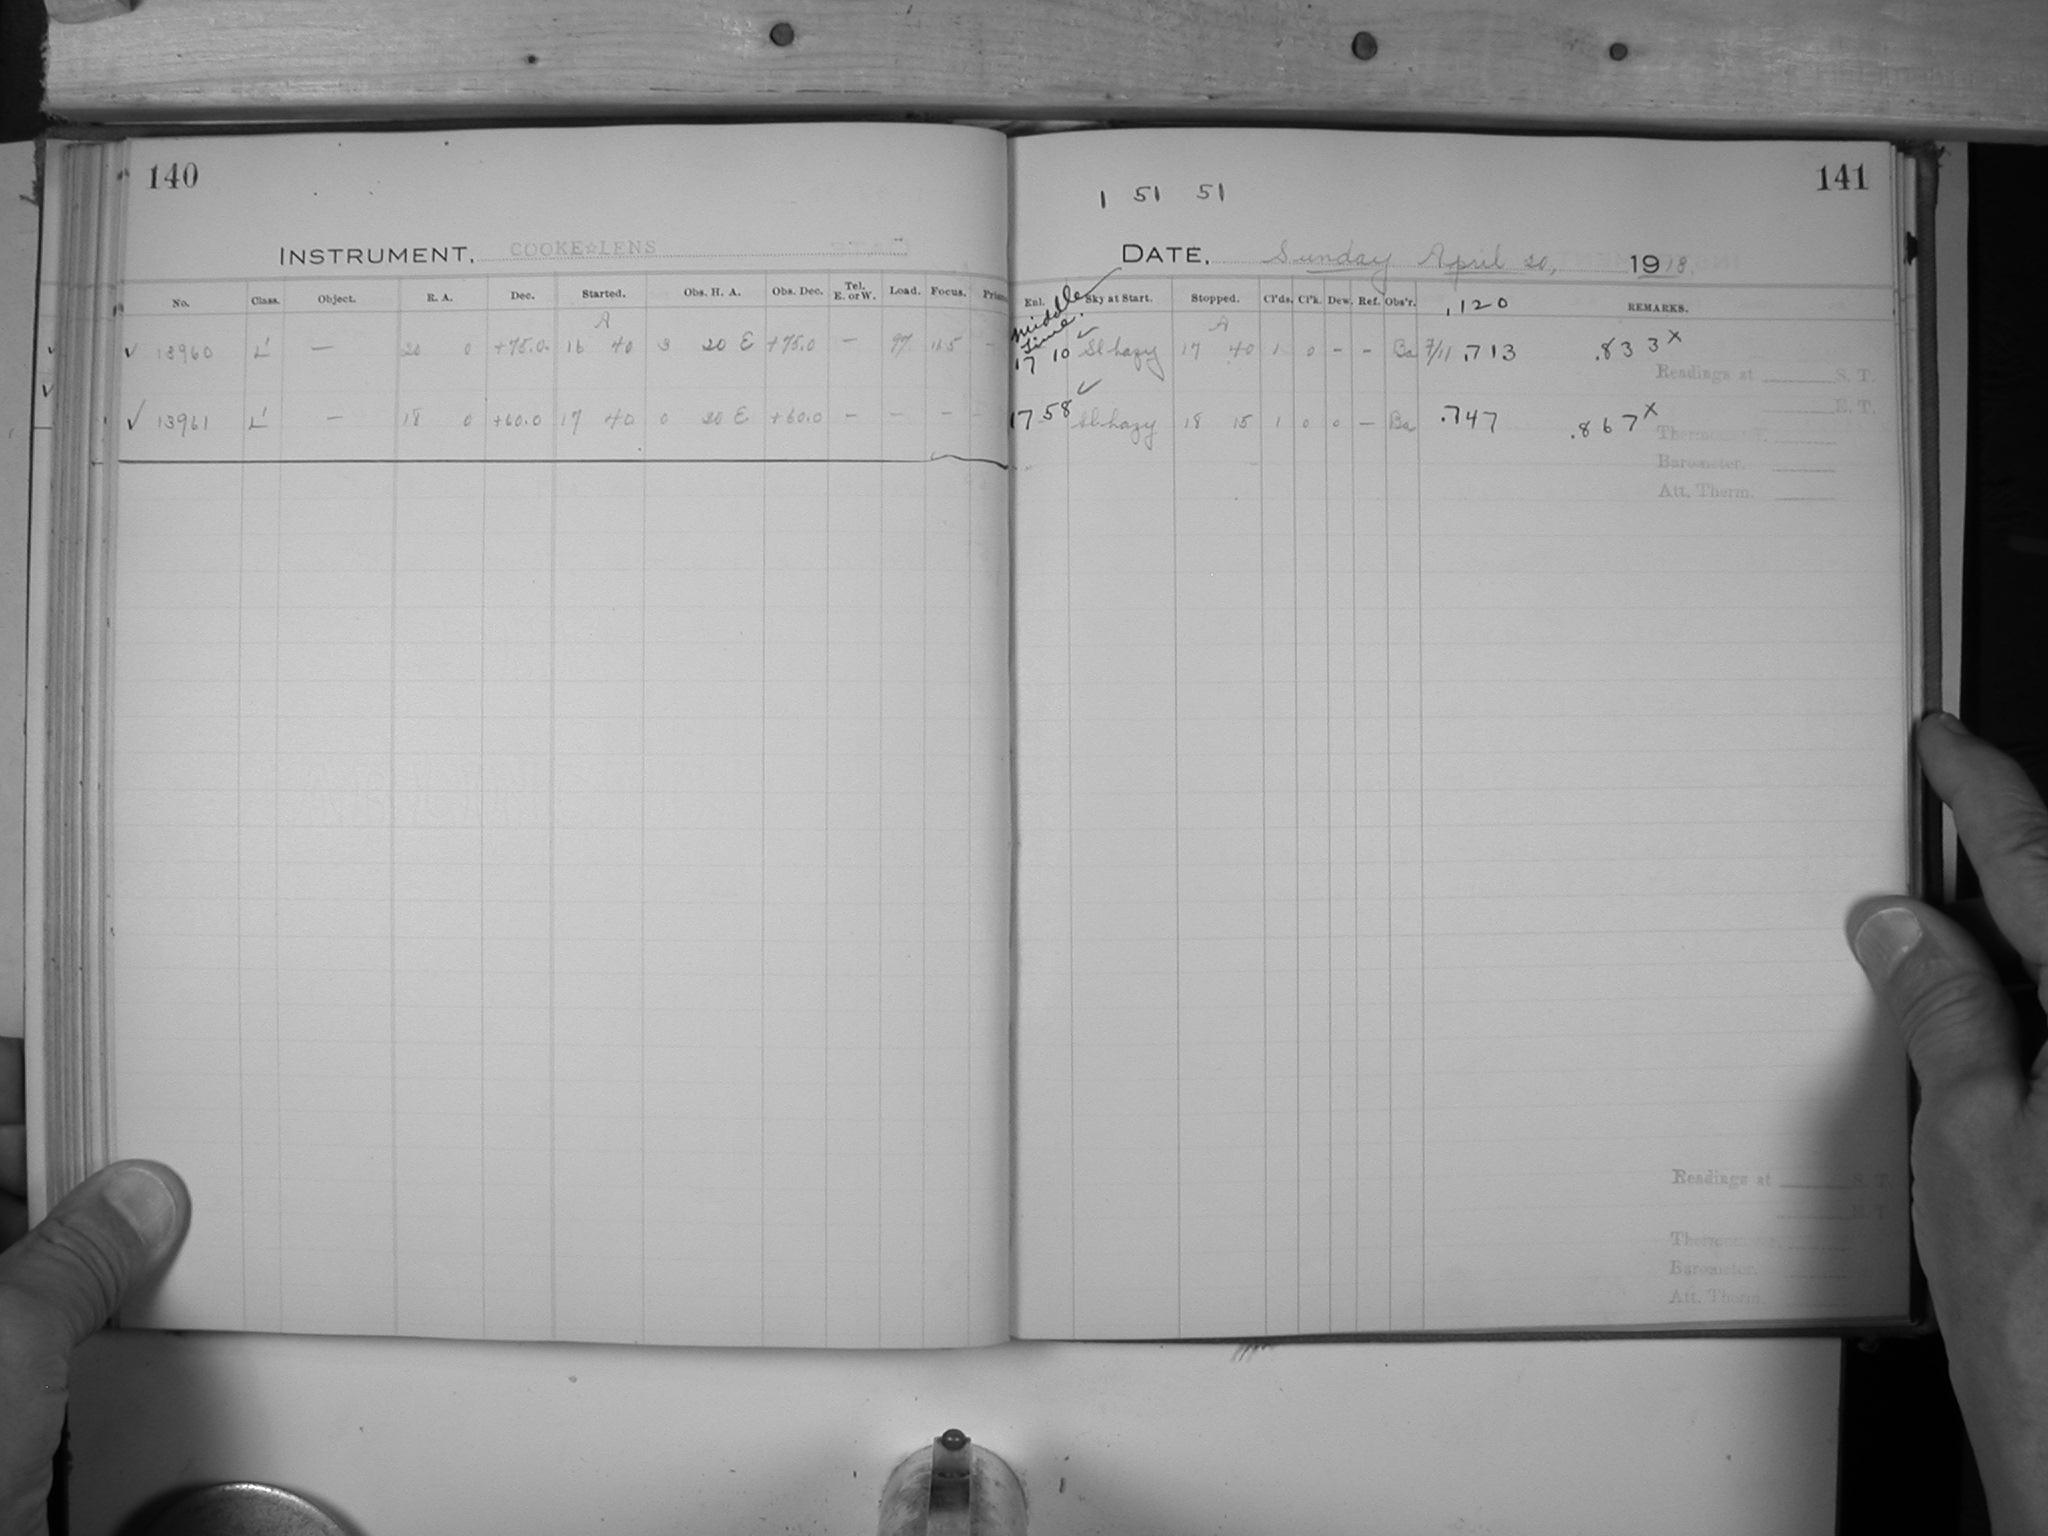 140
INSTRUMENT, COOKE☆LENS
No. Class. Object. R. A. Dec. Started. Obs. H. A. Obs. Dec. Tel. E. or W. Load. Focus.
A
✓ 13960 L' — 20 0 +75.0 16 40 3 20 E +75.0 — 97 —
✓ 13961 L' — 18 0 +60.0 17 40 0 20 E +60.0 — — — —
141
1 51 51
DATE, Sunday April 20, 1918.
Enl. Sky at Start. Stopped. Cl'ds. Cl'k. Dew. Ref. Obs'r. .120 REMARKS.
Middle Time.
A
17 10 ✓ Sl hazy 17 40 1 0 – – Ba 7/11 .713 .833 x
Readings at S. T.
E. T.
17 58 ✓ Sl hazy 18 15 1 0 0 – Ba .747 .867 x
Thermometer.
Barometer.
Att. Therm.
Readings at S. T.
Thermometer.
Barometer.
Att. Therm.